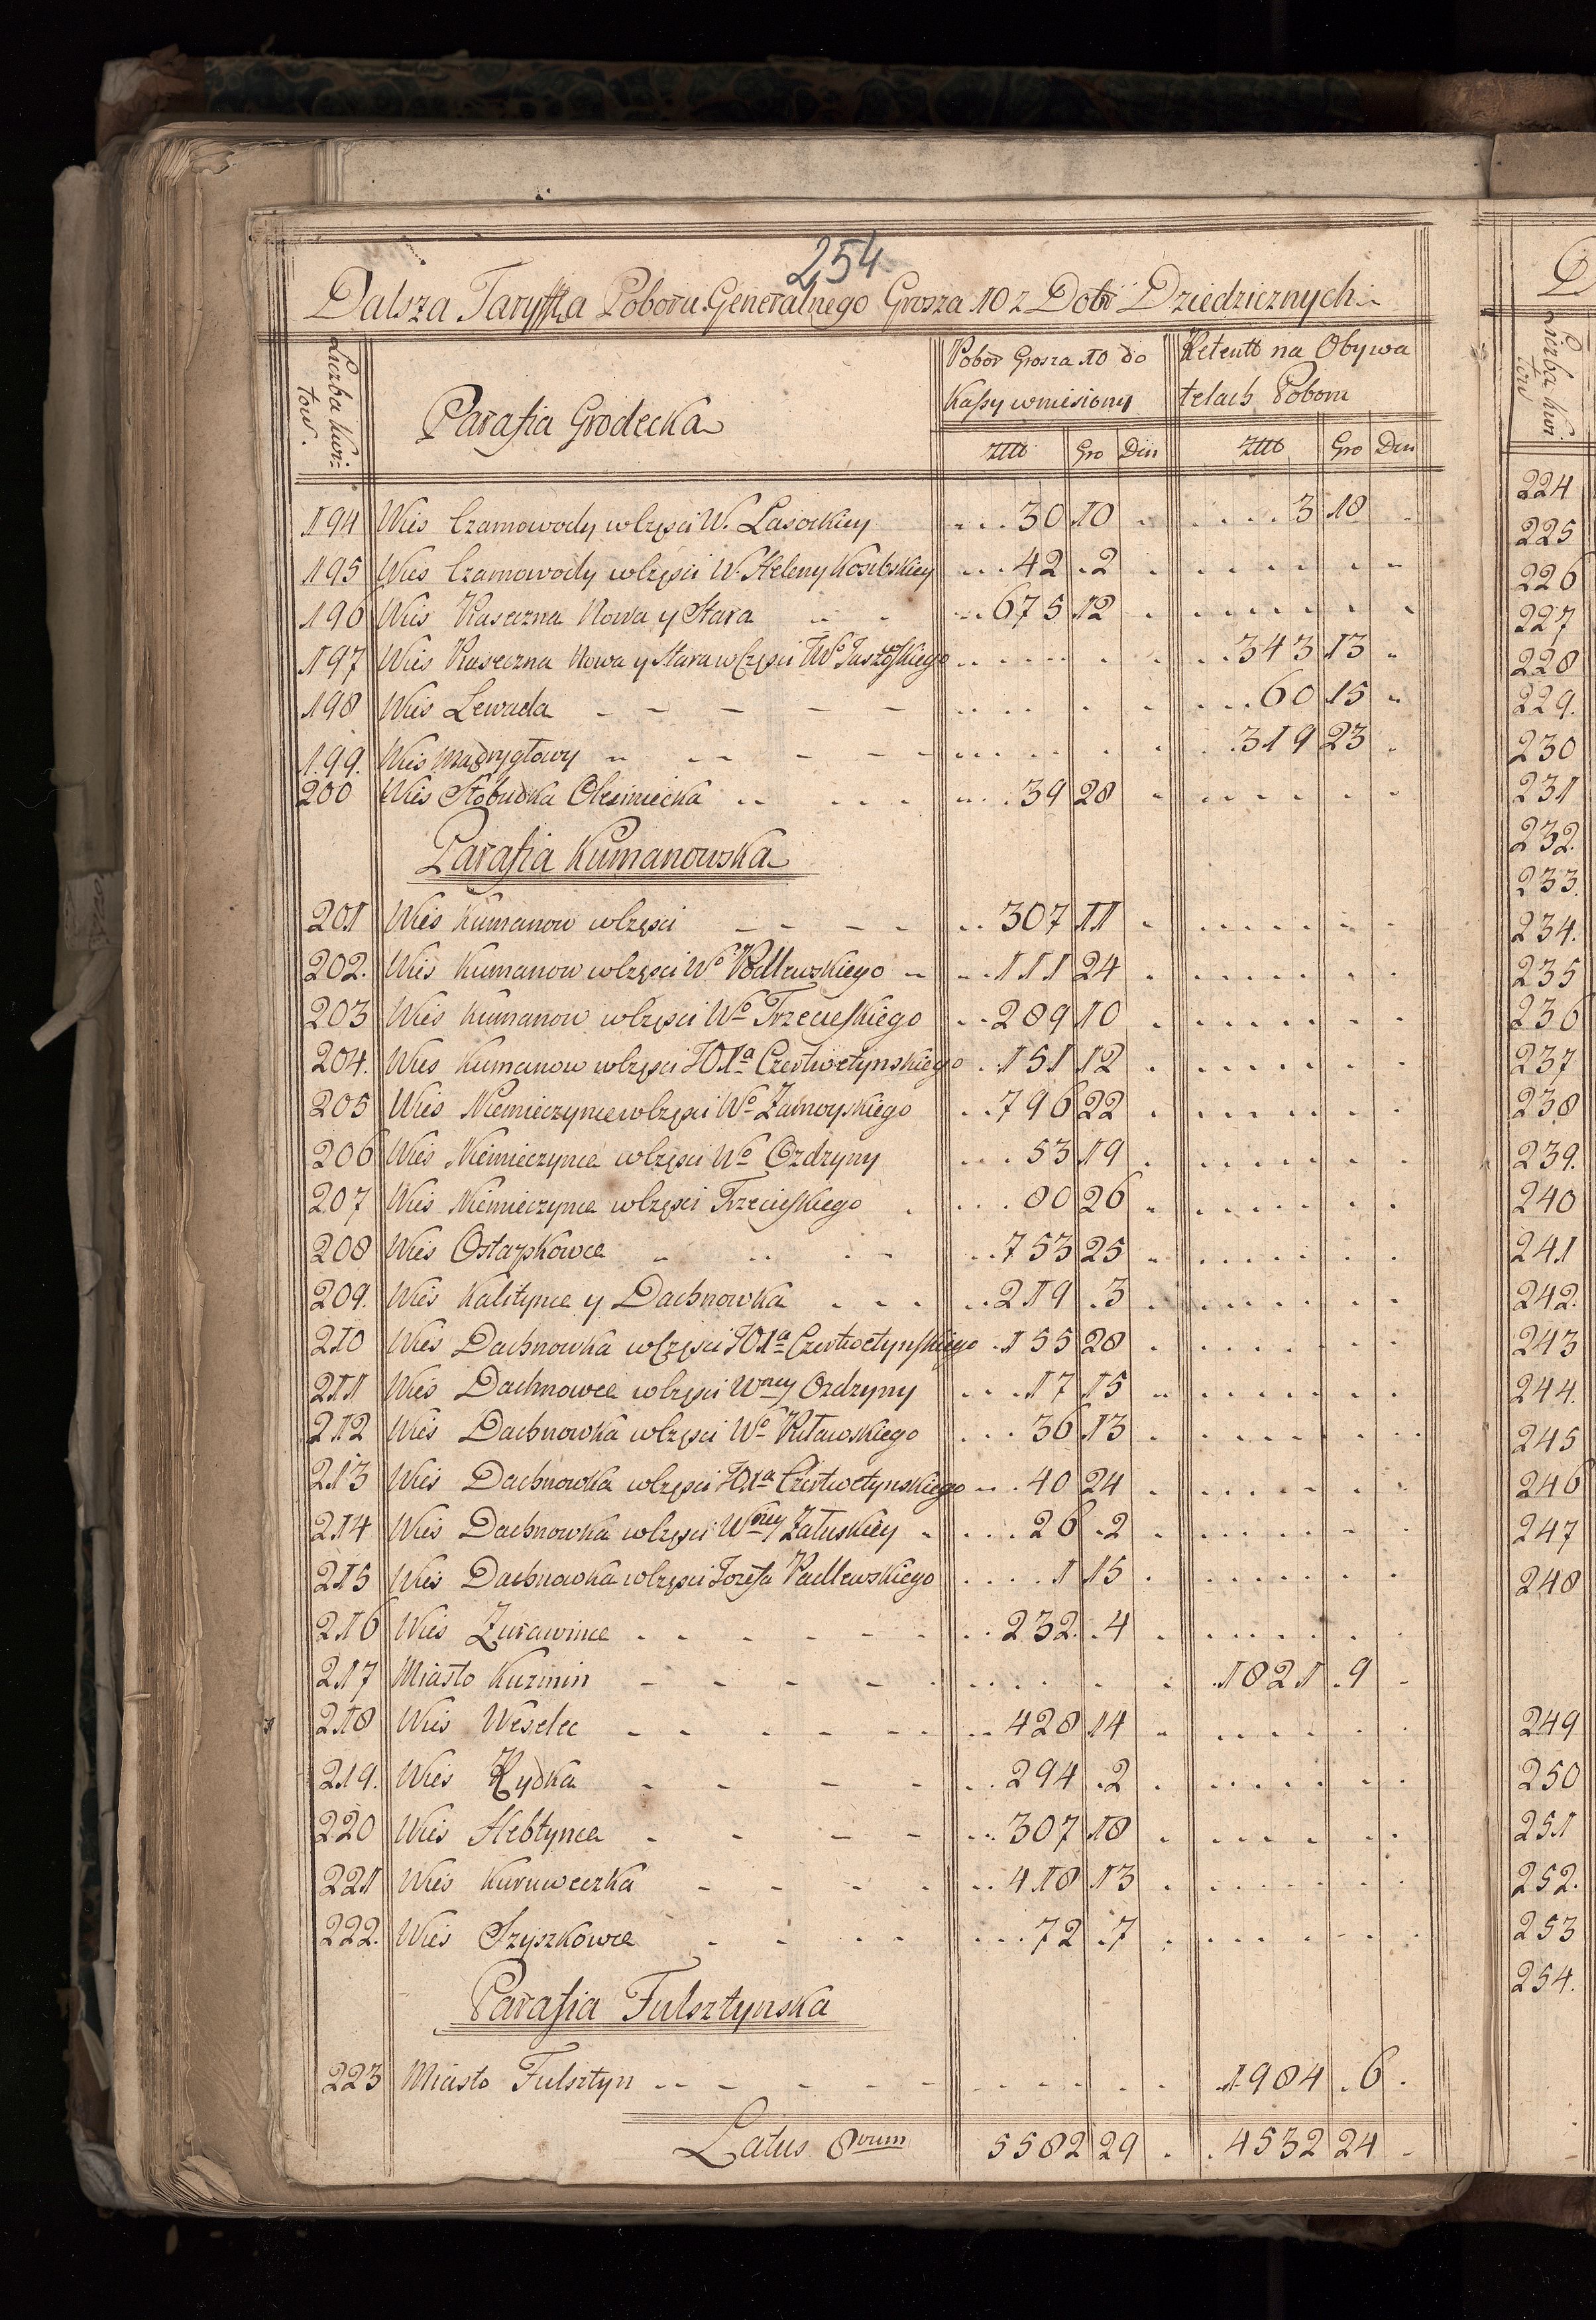 254
Dalsza Taryffa Poboru Generalnego Grosza 10 z Dobr Dziedzicznych
Liczba kwi:
tow.
Parafia Grodecka
Pobor Grosza 10 do
Kassy wniesiony
Retenta na Obywa
telach Poboru
Gro Den
Gro Den
194 Wies Czarnowody w Częsci W. Lasockiey 30 10 3 18
195 Wies Czarnowody w Częsci W. Heleny 42 2
196 Wies Piaseczna Nowa y Stara 675 12
197 Wies Piaseczna Nowa y Stara w Częsci 343 13
198 Wies Lewada 60 15
199. Wies Mądrygłowy 319 23
200 Wies Słobudka Olesiniecka 39 28
Parafia Kumanowska
201 Wies Kumanow w Częsci 307 11
202. Wies Kumanow w Częsci Wo Padlewskiego 111 24
203 Wies Kumanow w Częsci Wo Trzecieskiego 289 10
204. Wies Kumanow w Częsci JO Xa Czetwetynskiego 151 12
205 Wies Niemieczynce w Częsci Wo Zamoyskiego 796 22
206 Wies Niemieczynce w Częsci Wo Ozdzyny 53 19
207 Wies Niemieczynce w Częsci Trzecieskiego 80 26
208 Wies Ostapkowce 753 25
209. Wies Kalitynce y Dachnowka 219 3
210 Wies Dachnowka w Częsci JO Xa Czetwetynskiego 155 28
211 Wies Dachnowce w Częsci Wney Ozdzyny 17 15
212 Wies Dachnowka w Częsci Wo 36 13
213 Wies Dachnowka w Częsci JO Xa Czetwetynskiego 40 24
214 Wies Dachnowka w Częsci Wney Załuskiey 26 2
215 Wies Dachnowka w Częsci Jozefa Padlewskiego 1 15
216 Wies Zurawince 232 4
217 Miasto Kuzmin 1821 9
218 Wies Weselec 428 14
219. Wies Rydka 294 2
220 Wies Hebtynce 307 18
221 Wies Kuzmeczka 418 13
222. Wies Szyszkowce 72 7
Parafia Fulsztynska
223 Miasto Fulsztyn 1984 6
Latus 8vum 5582 29 4532 24
D
Liczba kwi
tow
224
225
226
227
228
229.
230
231
232.
233.
234.
235
236
237
238
239.
240
241
242.
243
244.
245
246
247
248
249
250
251
252.
253
254.